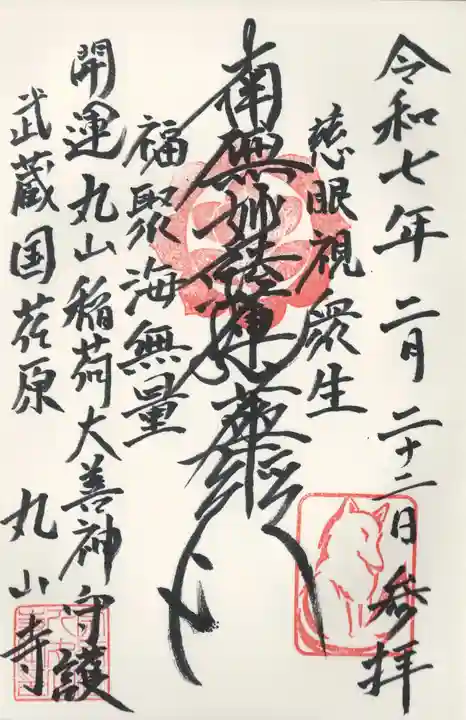 令和七年 二月二十二日 参拝
慈眼視衆生
南無妙法蓮華経
福聚海無量
開運丸山稲荷大善神守護
武蔵国荏原 丸山寺